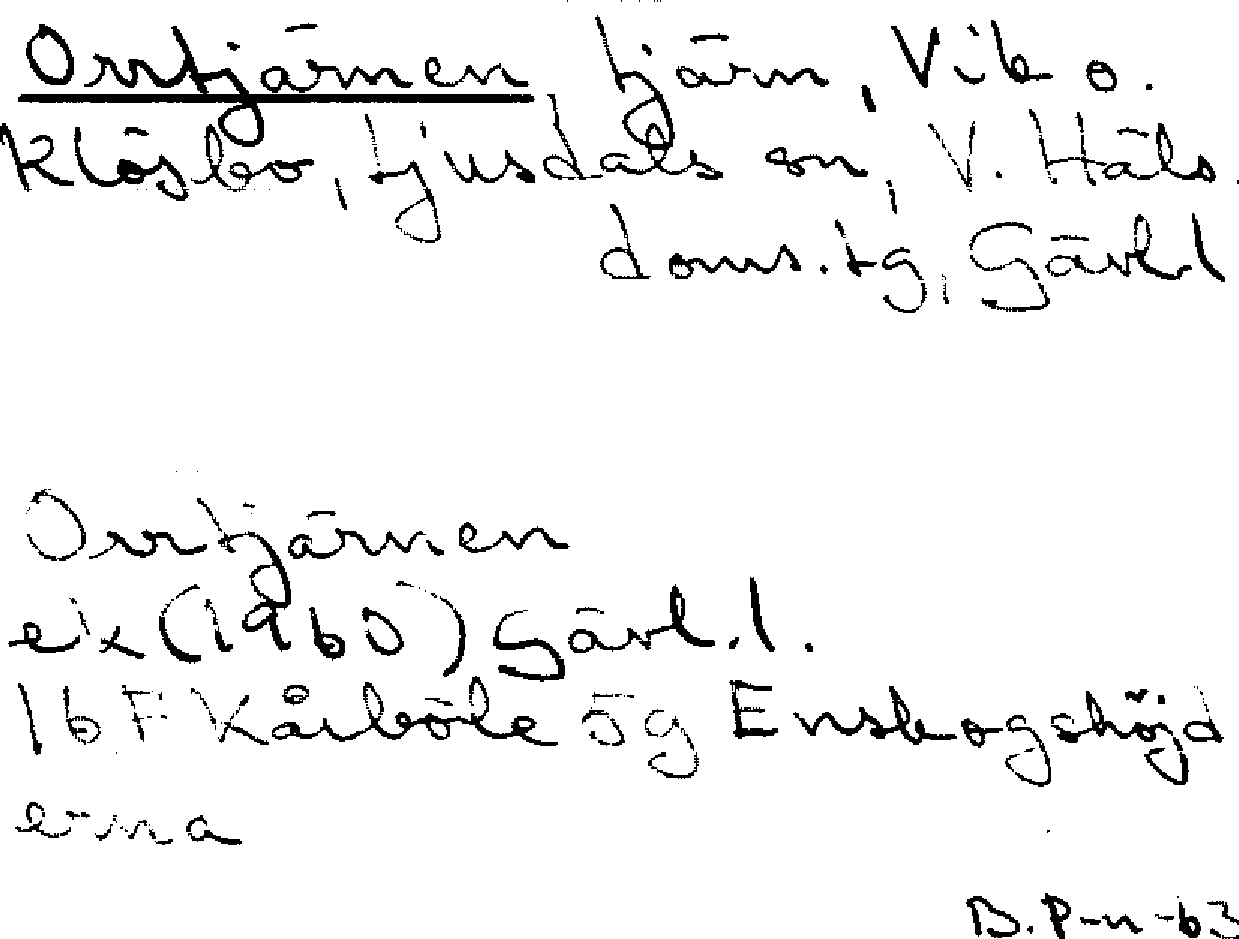 Orrtjärnen, tjärn, Vik o.
Klåsbo, Ljusdals sn, V. Häls.
doms. tg, Gävl.l
Orrtjärnen
ek (1960) Gävl.l.
16F Kårböle 5g Enskogshöjd
erna
B.P-n -63